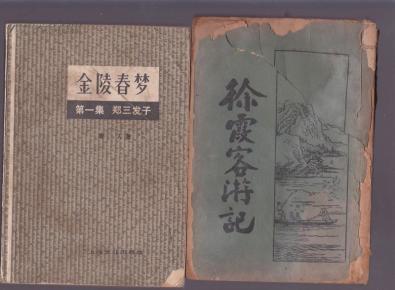 金陵春梦
第一集 郑三发子
徐霞客游記